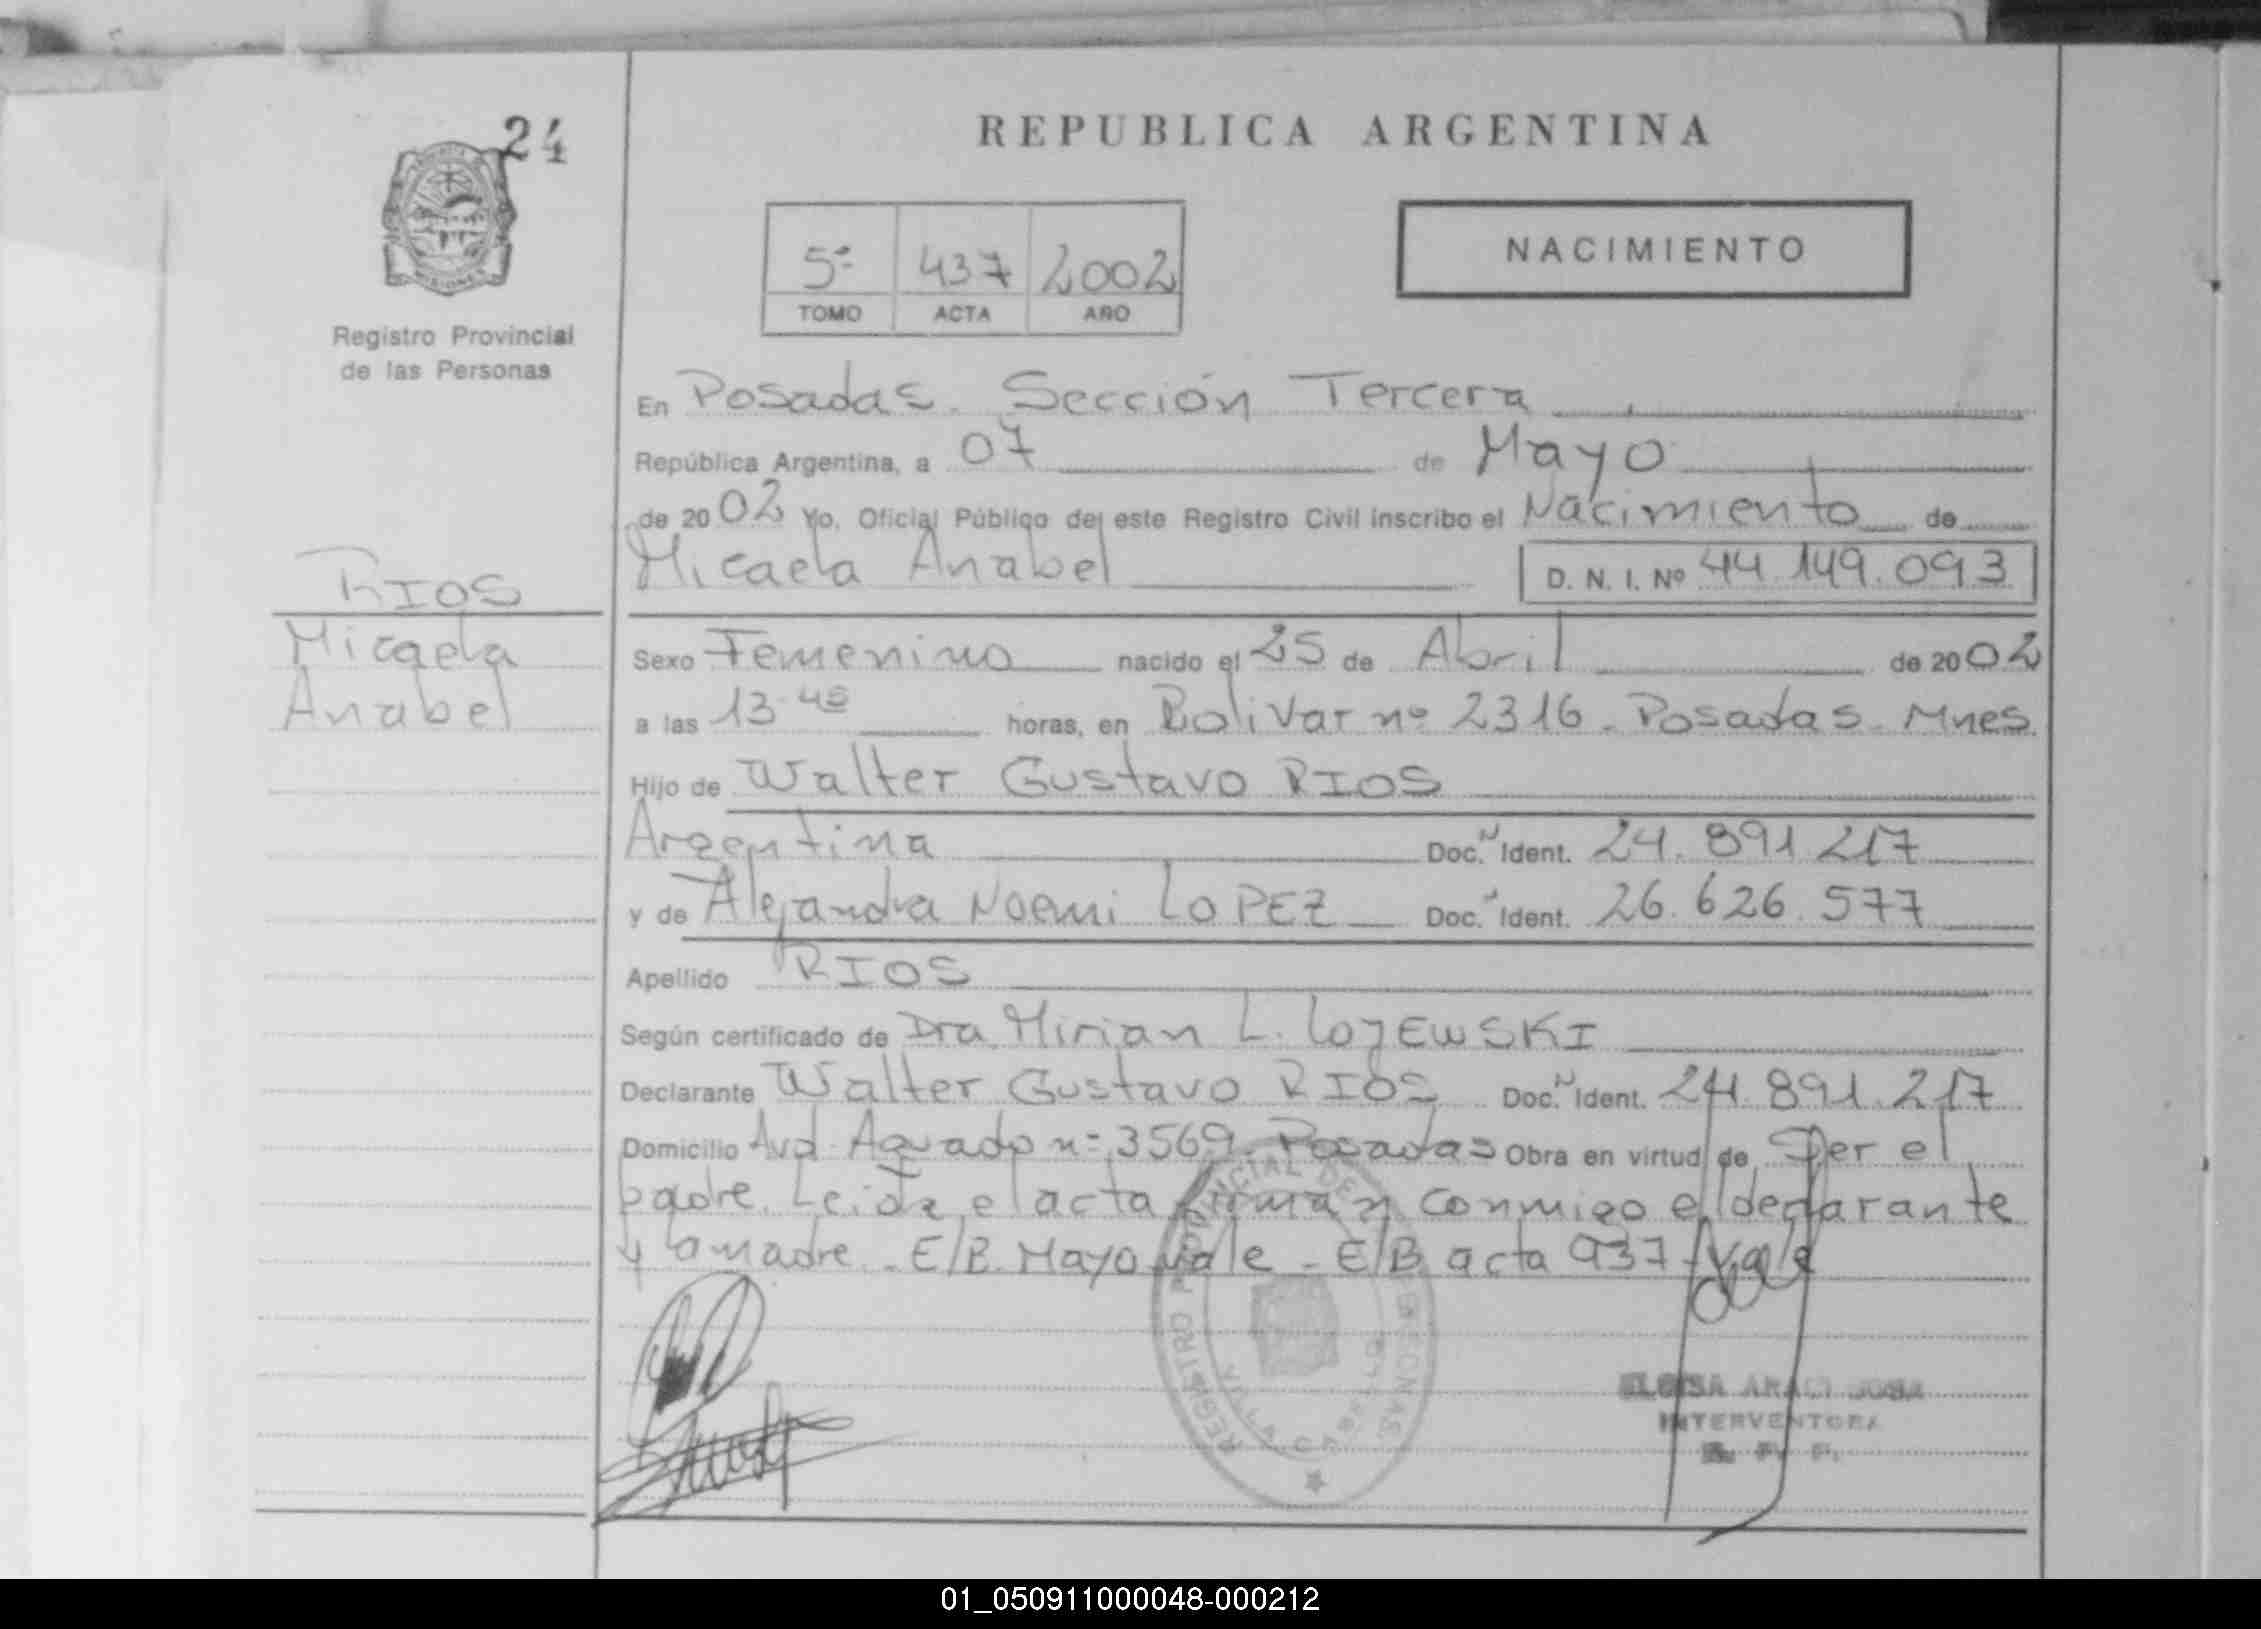 24
REPUBLICA ARGENTINA
NACIMIENTO
5ª 437 2002
TOMO ACTA AÑO
Registro Provincial
de las Personas
En Posadas. Sección Tercera
República Argentina, a 07 de Mayo
de 2002 Yo, Oficial Público de este Registro Civil inscribo el Nacimiento de
Micaela Anabel D. N. I. Nº 44.149.093
RIOS
Micaela
Anabel
Sexo Femenino nacido el 25 de Abril de 2002
a las 13 horas, en Bolivar nº 2316 - Posadas - Mnes.
Hijo de Walter Gustavo RIOS
Argentina Doc. N Ident. 24.891.217
y de Alejandra Noemi LOPEZ Doc. Ident. 26.626.577
Apellido RIOS
Según certificado de Dra. Mirian L. LOJEWSKI
Declarante Walter Gustavo RIOS Doc. N Ident. 24.891.217
Domicilio Avd. Aguado nº 3569. Posadas Obra en virtud de Ser el
padre. Leida el acta firman conmigo el declarante
y la madre. - E/B. Mayo vale - E/B acta 437 - Vale
REGISTRO PROVINCIAL DE LAS PERSONAS
VILLA
ELOISA
INTERVENTORA
R. P. P.
01_050911000048-000212